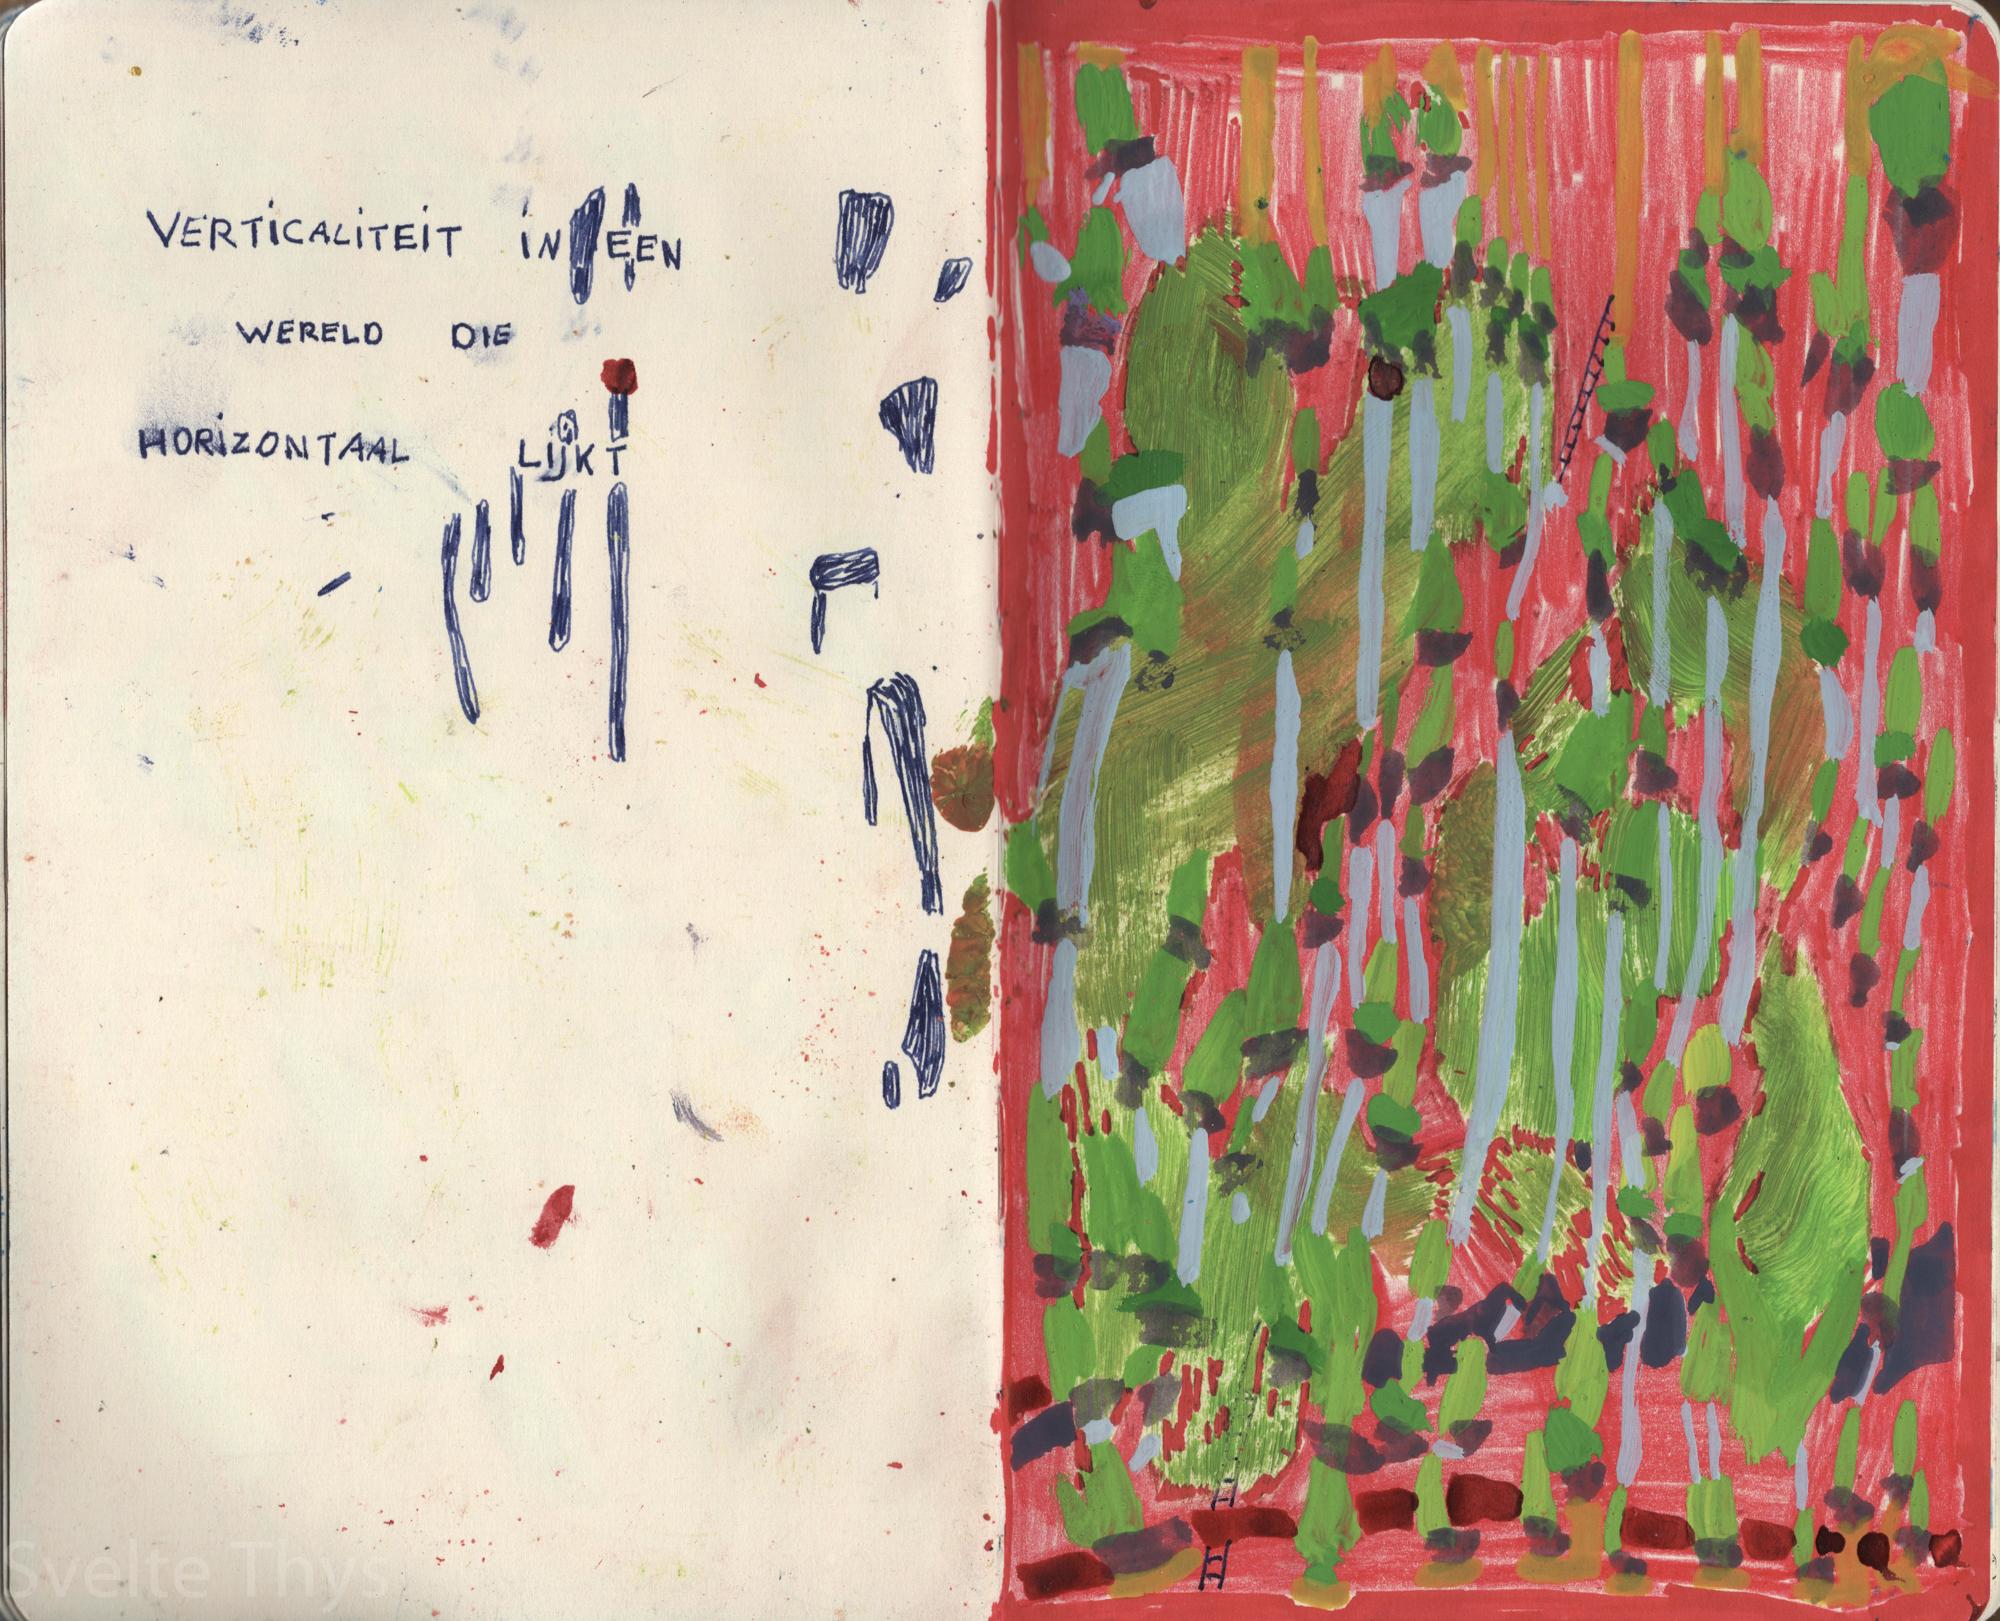 VERTiCALiTEiT iN EEN
WERELD DIE
HORiZONTAAL LIJKT
Svelte Thys